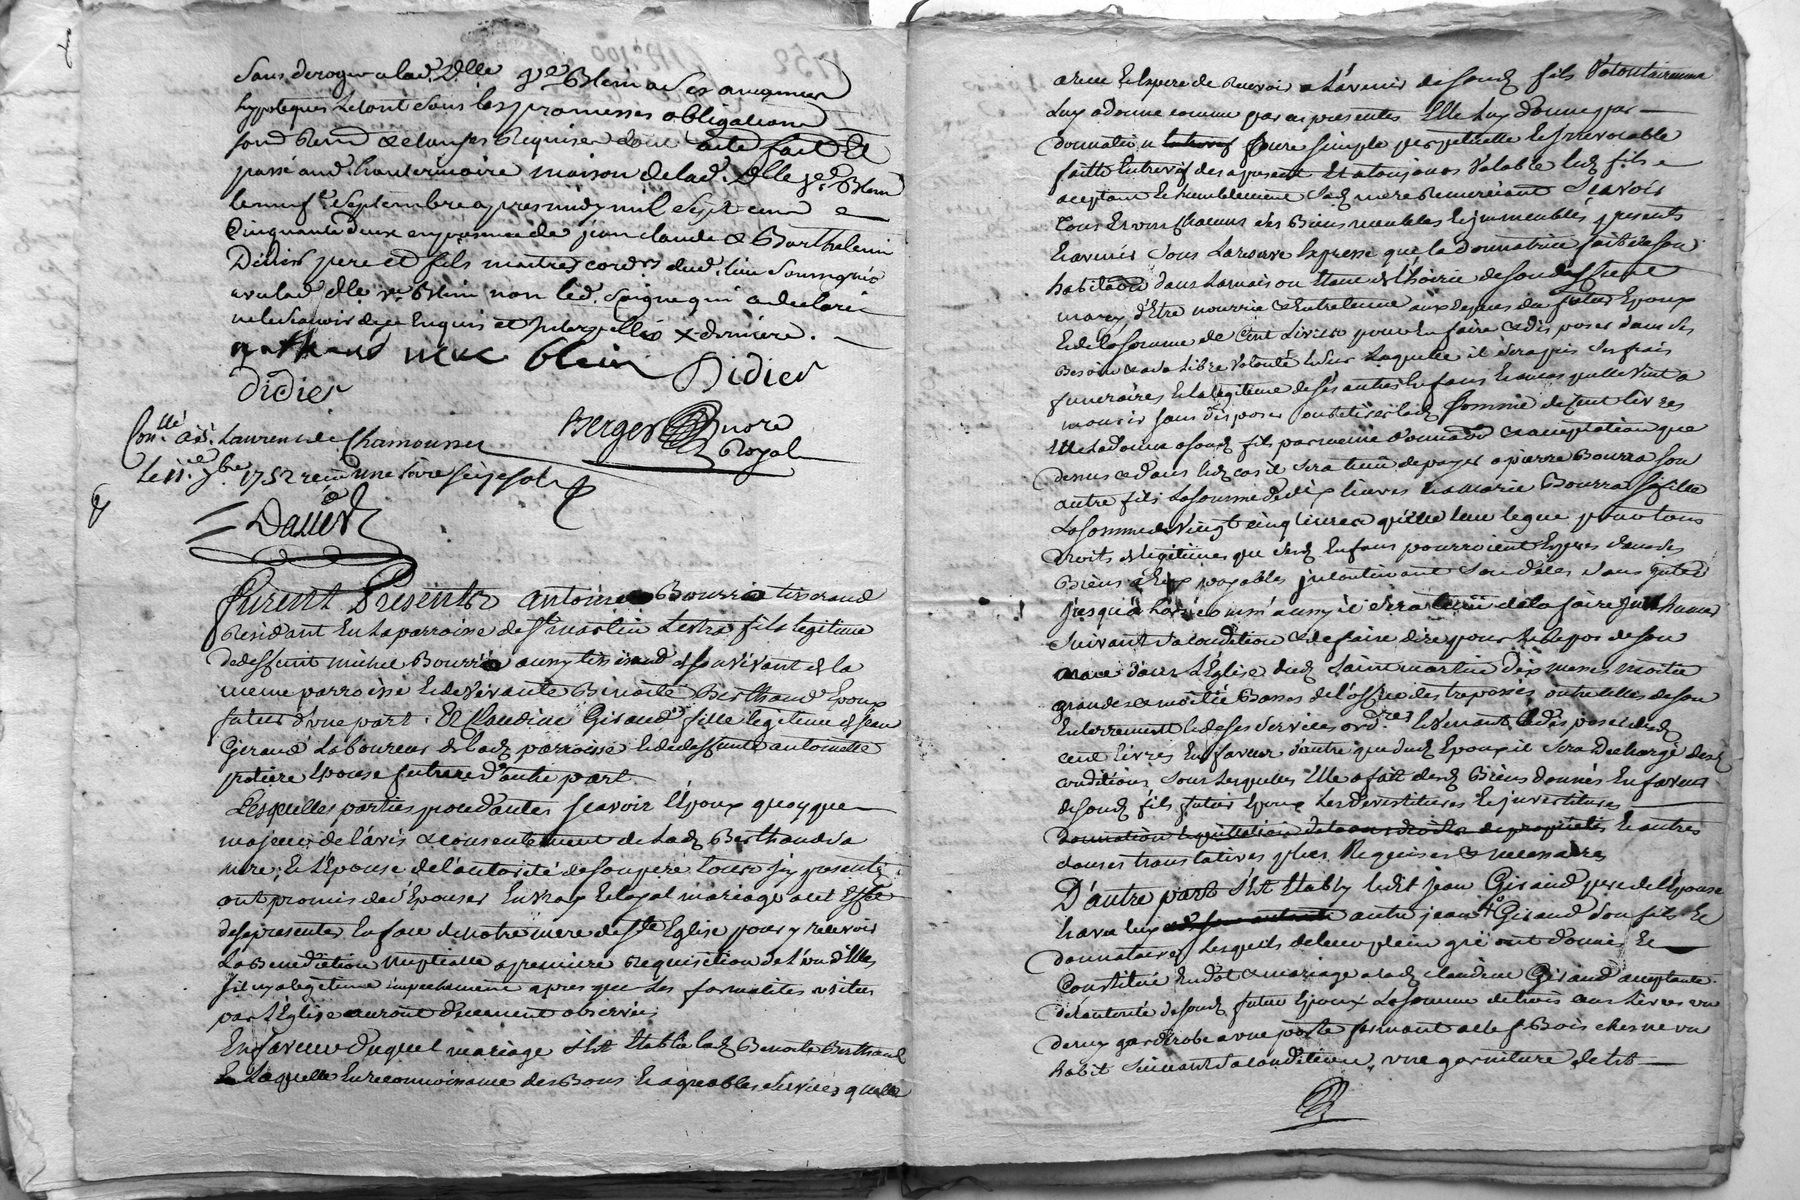 Sans deroger a lad. Dlle ve Blein a ses anciennes
hypoteques le tout sous les promesses obligations
soum. Renon. & clauses Requises dont acte fait Et
passé aud. hauterivoire maison de lad. Dlle ve Blein
le neuf.e Septembre apres midy mil Sept cens
Cinquante deux en presence de jean claude & Barthelemi
Didier pere et fils maitres cord.rs dud. lieu Soussignés
avec lad. Dlle ve Blein non led. qui a declaré
ne le Scavoir de ce Enquis et Interpellés
veuve blein Didier
Didier
Berger no.re
Royal
Con.llé a St. Laurent de Chamousset
Le 11.e 7bre 1752 reçu une livre seize sols
Daller
Furent Presents antoine Bourra tisserand
Residant En la parroisse de St martin Lestra fils legitime
de deffunt michel Bourra aussy tisserand de son vivant de la
meme parroisse Et de vivante Benoite Berthaud Epoux
futur d'une part. Et Claudine Giraud fille legitime de Jean
Giraud Laboureur de lad. parroisse Et de deffunte antoinette
Epouse future d'autre part
Lesquelles parties procedantes scavoir l'Epoux quoyque
majeur de l'avis & consentement de lad. Berthaud sa
mere, Et l'Epouse de l'autorité de son pere tous icy presents
ont promis de s'Epouser En vray Et loyal mariage a cet Effet
de se presenter En face de notre mere de Ste Eglise pour y recevoir
la Benediction nuptialle a premiere Requisition de l'un d'Elles
s'il ny a legitime empechement apres que les formalités usitées
par l'Eglise auront duement observées
En faveur duquel mariage s'est Etablie lad. Benoite Berthaud
Laquelle En reconnoissance des Bons Et agreables Services quelle
a reçu Et Espere de Recevoir a l'avenir de soud. fils Volontairement
luy a donné comme par ces presentes Elle luy donne par
donnation pure simple perpetuelle Et Irrevocable
faitte Entrevifs des a present Et a toujours Valable led. fils
aceptant Et humblement sad. mere Remerciant Scavoir
tous Et uns Chacuns ses Biens meubles Et immeubles presents
Et avenir Sous la reserve Expresse que la donnatrice fait de son
habitation dans la maison Etant de l'hoirie de son deffunt
mary d'Etre nourrie & Entretenue aux depens du futur Epoux
Et de la somme de Cent Livres pour En faire & disposer dans ses
Besoins & a sa libre Volonté Et sur laquelle il sera pris ses frais
funeraires Et la legitime de ses autres Enfans Et au cas quelle vint a
mourir sans disposer lad. somme de Cent livres
Elle la donne a soud. fils par meme donnation & aceptation que
dessus & dans led. cas il sera tenu de payer a pierre Bourra son
autre fils la somme de dix livres Et a marie Bourra sa fille
la somme de vingt cinq livres quelle leur legue pour tous
droits de legitimes que sesd. Enfans pourroient Esperer dans ses
Biens a Eux payables son déces sans interets
jusqu'a lors comm' aussy il sera tenu de la faire inhumer
suivant sa condition & de faire dire pour le Repos de son
ame dans l'Eglise dud. saint martin dix messes moitié
grandes & moitié Basses de l'office des trepassés outre celles de son
Enterrement Et de ses services ord.res Et venant a disposer desd.
cent livres En faveur d'autre que dud. Epoux il sera dechargé desd.
conditions sous lesquelles Elle a fait desd. Biens donnés En faveur
de soud. fils futur Epoux les devestitures Et investitures
Et autres
clauses translatives plus Requises & necessaires
D'autre part s'est Etably ledit jean Giraud pere de l'Epouse
Et avec luy autre jean Giraud son fils Et
donnataire, Lesquels de leur plein gré ont donné Et
Constitué En dot & mariage a lad. claudine Giraud aceptante
de l'autorité de soud. futur Epoux La somme de trois cens livres un
garderobe a une porte fermant a clef Bois chesne un
habit suivant sa condition, une garniture de lit